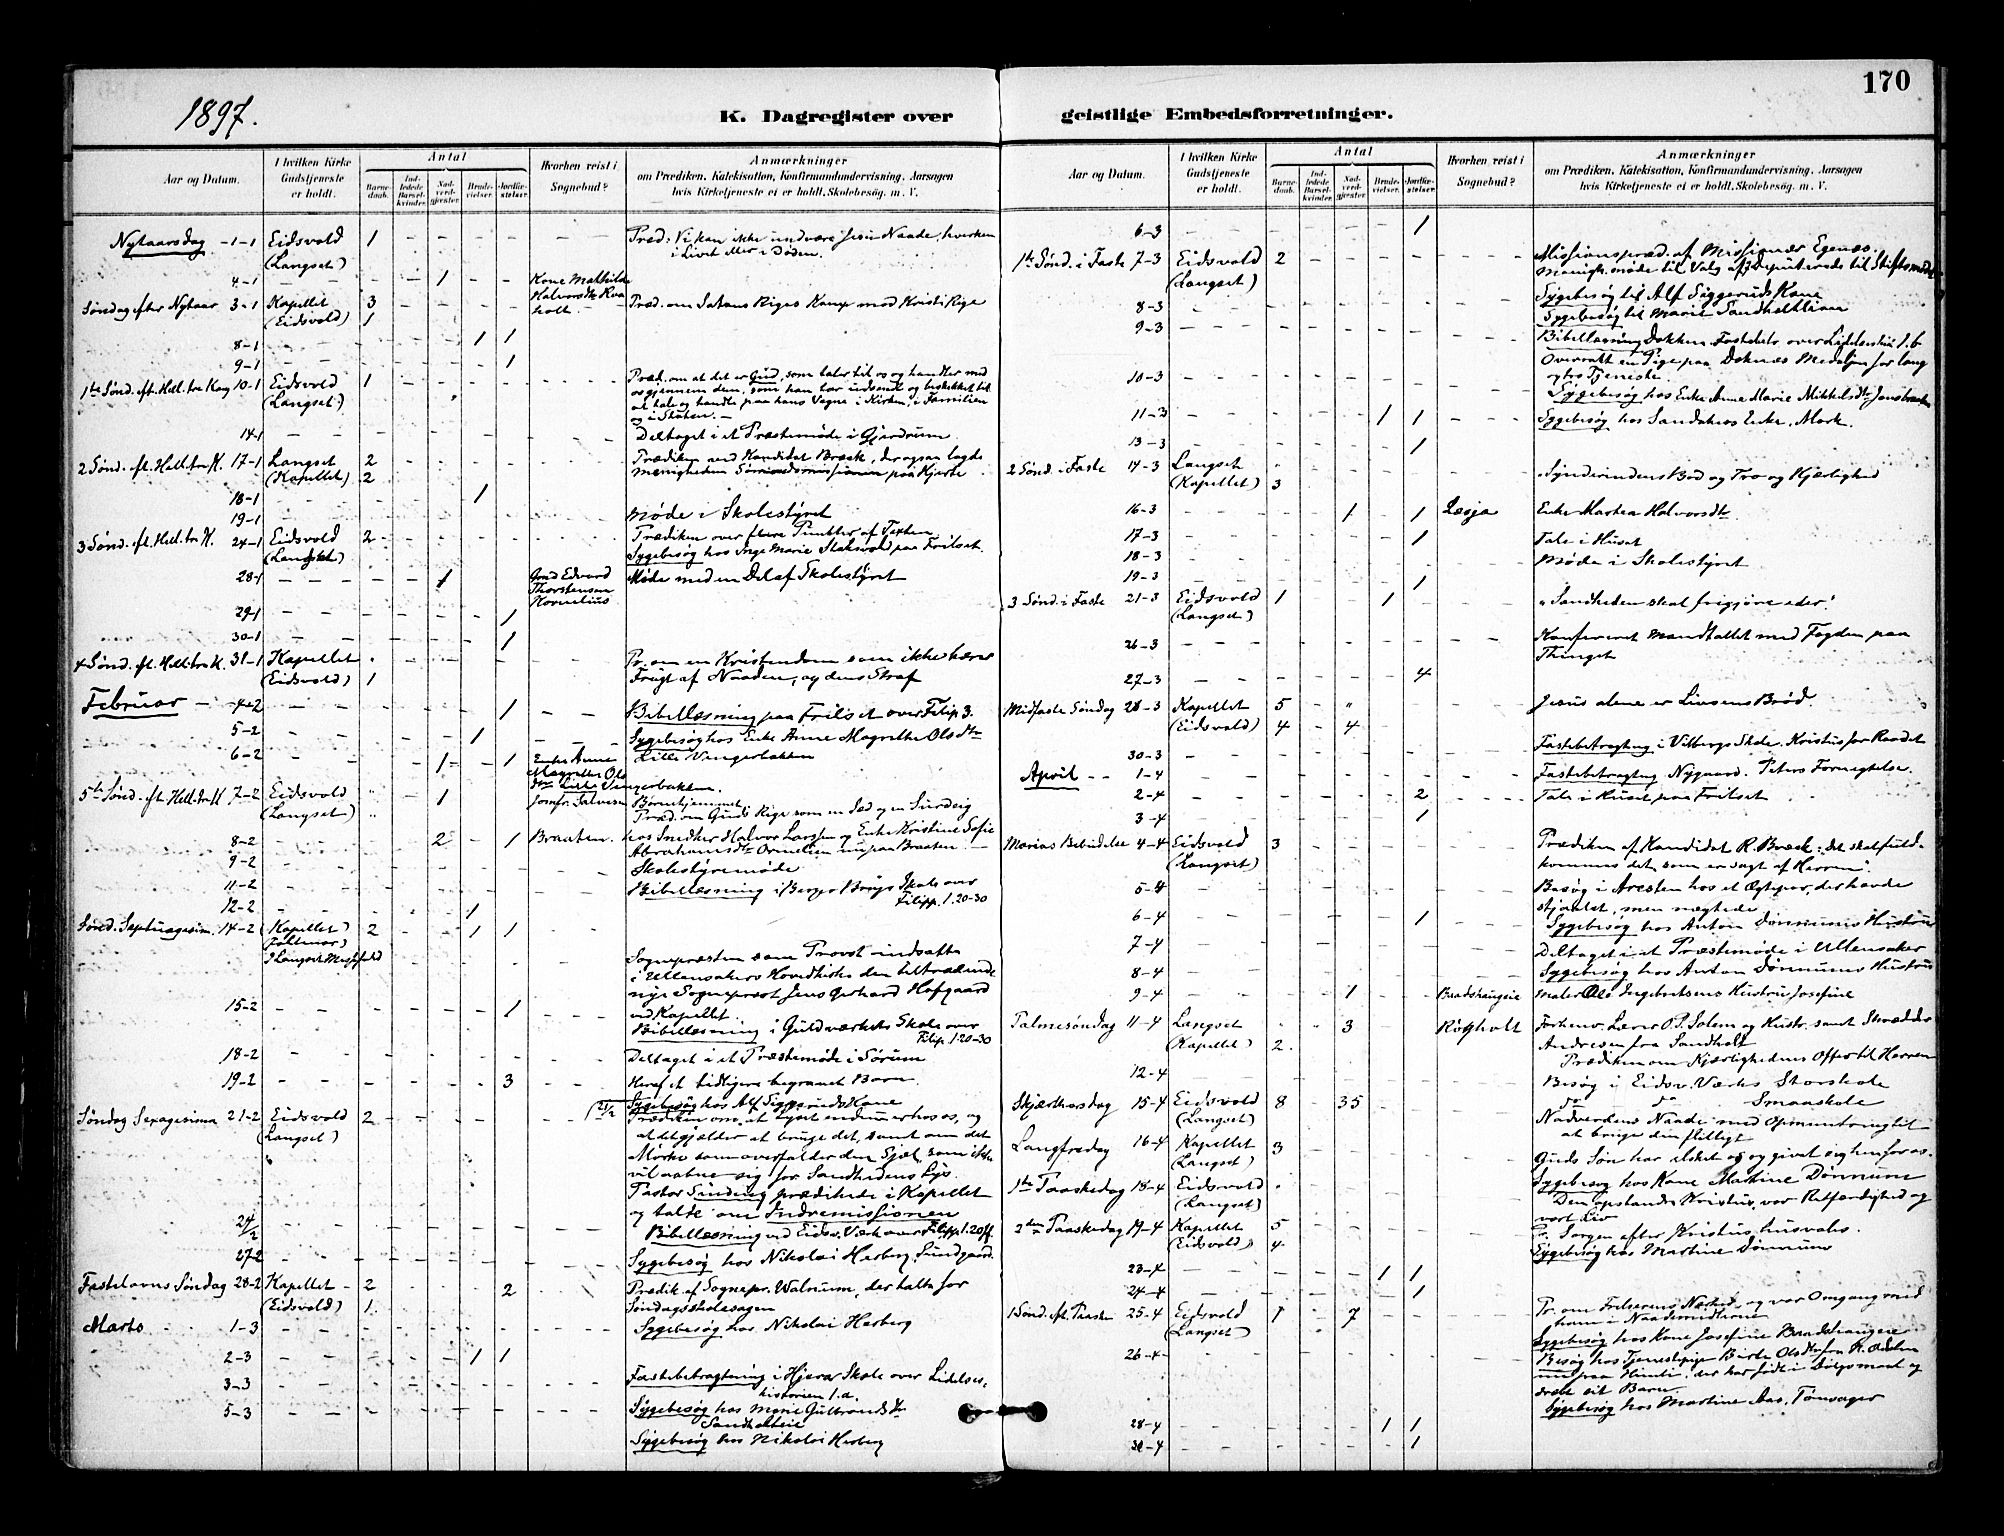 170
1897.
K. Dagregister over geistlige Embedsforretninger.
Aar og Datum. I hvilken Kirke Gudstjeneste er holdt. Antal Barnedaab. Indledede Barselkvinder. Nadverdgjester. Brudevielser. Jordfæstelser. Hvorhen reist i Sognebud? Anmærkninger om Prædiken, Katekisation, Konfirmandundervisning, Aarsagen hvis Kirketjeneste ei er holdt, Skolebesøg, m. V.
Nytaarsdag - 1-1 Eidsvold 1 Præd: Vi kan ikke undvære Jesu Naade, hverken
(Langset) i Livet eller i Døden.
4-1 1 Kone Mathilde
Søndag efter Nytaar 3-1 Kapellet 3 Præd. om Satans Riges Kamp mod Kristi Rige
(Eidsvold) 1
8-1 1 1
9-1 1
1ste Sønd. eft. Hell. tre Kong 10-1 Eidsvold 1 Præd. om at det er Gud, som taler til os og handler med
(Langset) os gjennem dem, som han har udsendt og beskikket til
at tale og handle paa hans Vegne i Kirken, i Familien
og i Staten. -
14-1 Deltaget i et Præstemøde i Gjerdrum
2 Sønd. eft. Hell. tre K. 17-1 Langset 2 Prædiken ved Kandidat Bræck, der ogsaa lagde
(Kapellet) 2 menigheden Sømandsmissionen paa Hjerte
18-1 1
19-1 Møde i Skolestyret
3 Sønd. eft. Hell. tre K. 24-1 Eidsvold 2 Prædiken over flere Punkter af Texten
(Langset) Sygebesøg hos Inge Marie Staksvold paa Frilset.
28-1 1 Edvard Møde med en Del af Skolestyret
Thorstensen
Kornelius
29-1 1
30-1 1
4 Sønd. eft. Hell. tre K. 31-1 Kapellet Pr. om en Kristendom som ikke bærer
(Eidsvold) 1 Frugt af Naaden, og dens Straf
Februar 4-2 1 Bibellæsning paa Frilset over Filip 3.
5-2 1 Sygebesøg hos Enke Anne Magrethe Olsdtr
6-2 1 1 Enke Anne Lille Vengerbakken
Magrethe Ols
dtr Lille Vengerbakken.
5te Sønd. eft. Hell. tre K 7-2 Eidsvold 1 Børnehjemmet
(Langset) Præd. om Guds Rige som en Sæd og en Surdeig
8-2 2 1 Braaten. hos Snedker Halvor Larssen og Enke Kristine Sofie
Abrahamsdtr Ornelien nu paa Braaten.
9-2 Skolestyremøde
11-2 Bibellæsning i Skole over
12-2 1 Filipp. 1.20-30
Sønd. Septuagesima. 14-2 (Kapellet) 2 1 1
I Langset Messefald
Sognepræsten som Provst indsatte
i Ullensakers Hovedkirke den tiltrædende
nye Sognepræst Jens Gerhard Hofgaard
15-2 1 ved Kapellet.
Bibellæsning i Guldværkets Skole over
Filip. 1.20-30
18-2 Deltaget i et Præstemøde i Sørum
19-2 3 Heraf et tidligere begravet Barn.
21/2 Sygebesøg hos Alf Siggeruds Kone
Søndag Sexagesima 21-2 Eidsvold 2 Prædiken om, at Lyset endnu er hos os, og
(Langset) at det gjælder at bruge det, samt om det
Mørke som overfalder den Sjæl, som ikke
vil aabne sig for Sandhedens Lys.
Pastor Sinding prædikede i Kapellet
og talte om Indremissionen
24/2 Bibellæsning ved Eidsv. Værk over Filipp. 1.20ff.
27-2 Sygebesøg hos Nikolai Herberg, Sundgaard.
Fastelavns Søndag 28-2 Kapellet 2 2 Prædik. af Sognepr. Walnum, der talte for
(Eidsvold) 1 Søndagsskolesagen
Marts 1-3 Sygebesøg hos Nikolai Herberg
2-3 1 1
3-3 Fastebetragtning i Hjera Skole over Lidelses,
historien 1.a.
5-3 Sygebesøg hos Marie Gulbrandsdtr
Sandholteie
Sygebesøg hos Nikolai Herberg
Aar og Datum. I hvilken Kirke Gudstjeneste er holdt. Antal Barnedaab. Indledede Barselkvinder. Nadverdgjester. Brudevielser. Jordfæstelser. Hvorhen reist i Sognebud? Anmærkninger om Prædiken, Katekisation, Konfirmandundervisning, Aarsagen hvis Kirketjeneste ei er holdt, Skolebesøg, m. V.
6-3 1
1ste Sønd. i Faste 7-3 Eidsvold 2 Missionspræd. af Missionær Egenæs.
(Langset) Menigh. møde til Valg af Deputerede til Stiftsmødet
8-3 Sygebesøg til Alf Siggeruds Kone
9-3 Sygebesøg til Marie Sandholtlien
Bibellæsning Dokken. Fastebetr. over Lidelseshist. 1.b
10-3 Overrakt en Pige paa Doknæs Medaljen for lang
og tro Tjeneste
Sygebesøg hos Enke Anne Marie Mikkelsdtr
11-3 1 1 Sygebesøg hos Sandakers Enke, Mork.
13-3 1
2 Sønd. i Faste 14-3 Langset Synderindens Bod og Tro og Kjærlighed
(Kapellet) 3
16-3 1 1 Læsja Enke Marthea Halvorsdtr
17-3 1 Tale i Huset
18-3 Møde i Skolestyret
19-3 1
3 Sønd. i Faste 21-3 Eidsvold 1 1 "Sandheden skal frigjøre eder."
(Langset)
26-3 Konfereret Mandtallet med Fogden paa
Thinget
27-3 4
Midfaste Søndag 28-3 Kapellet 5 Jesus alene er Livsens Brød.
(Eidsvold) 4 4
30-3 Fastebetragtng i Vilbergs Skole, Kristus for Raadet
April 1-4 Fastebetragtng Nygaard. Peters Fornegtelse.
2-4 2 Tale i Huset paa Frilset
3-4 1
Marias Bebudelse 4-4 Eidsvold 3 Prædiken af Kandidat R. Bræck: "det skal fuld-
(Langset) kommes det, som er sagt af Herren".
5-4 Besøg i Aresten hos et Ægtepar, der havde
stjaalet, men nægtede
6-4 1 Sygebesøg hos Anton Dønnums Hustru
7-4 Deltaget i et Præstemøde i Ullensaker
8-4 Sygebesøg hos Anton Dønnums Hustru
9-4 1 Baadshaugeie Maler Ole Ingebretsens Hustru Josefine
Palmesøndag 11-4 Langset 3 Røgholt Forhenv. Lærer P. J. Solem og Hustr. samt Skrædder
(Kapellet) 2 Andresen fra Sandholt
Prædiken om Kjærlighedens Offer til Herren
12-4 Besøg i Eidsv. Værks Storskole
Skjærthorsdag 15-4 Eidsvold 8 35 do do Smaaskole
(Langset) Nadverdens Naade med Opmuntring til
at bruge den flittigt
Langfredag 16-4 Kapellet 3 Guds Søn har elsket os og givet sig hen for os.
(Langset) Sygebesøg hos Kone Martine Dønnum
1ste Paaskedag 18-4 Eidsvold Den opstandne Kristus, vor Retfærdighed og
(Langset) vort Liv
2den Paaskedag 19-4 Kapellet 5 Pr. Sorgen efter Kristus, husvales.
(Eidsvold) 4 Sygebesøg hos Martine Dønnum
23-4 1 1
24-4 1
1 Sønd. eft. Paaske 25-4 Eidsvold 1 7 Pr. om Frelserens Nærhed og vor Omgang med
(Langset) ham i Naademidlerne
Sygebesøg hos Kone Josefine Baadshaugeie
26-4 Besøg hos Tjenestepige Birte Olsdtr fra
nu paa Himle, der har født i Dølgsmaal og
dræbt sit Barn
Sygebesøg hos Martine Aas, Tønsager
28-4 1 1
30-4 1